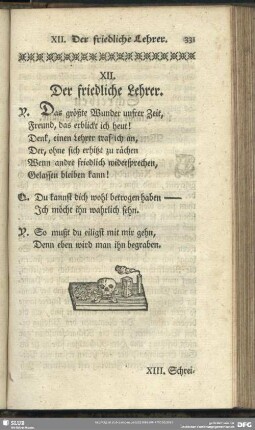 XII. Der friedliche Lehrer. 331
XII.
Der friedliche Lehrer.
P. Das größte Wunder unsrer Zeit,
Freund, das erblickt ich heut!
Denk, einen Lehrer traf ich an,
Der, ohne sich erhitzt zu rächen
Wenn andre friedlich widersprechen,
Gelassen bleiben kann!
O. Du kannst dich wohl betrogen haben —
Ich möcht ihn wahrlich sehn.
P. So mußt du eiligst mit mir gehn,
Denn eben wird man ihn begraben.
XIII. Schrei-
SLUB
DFG